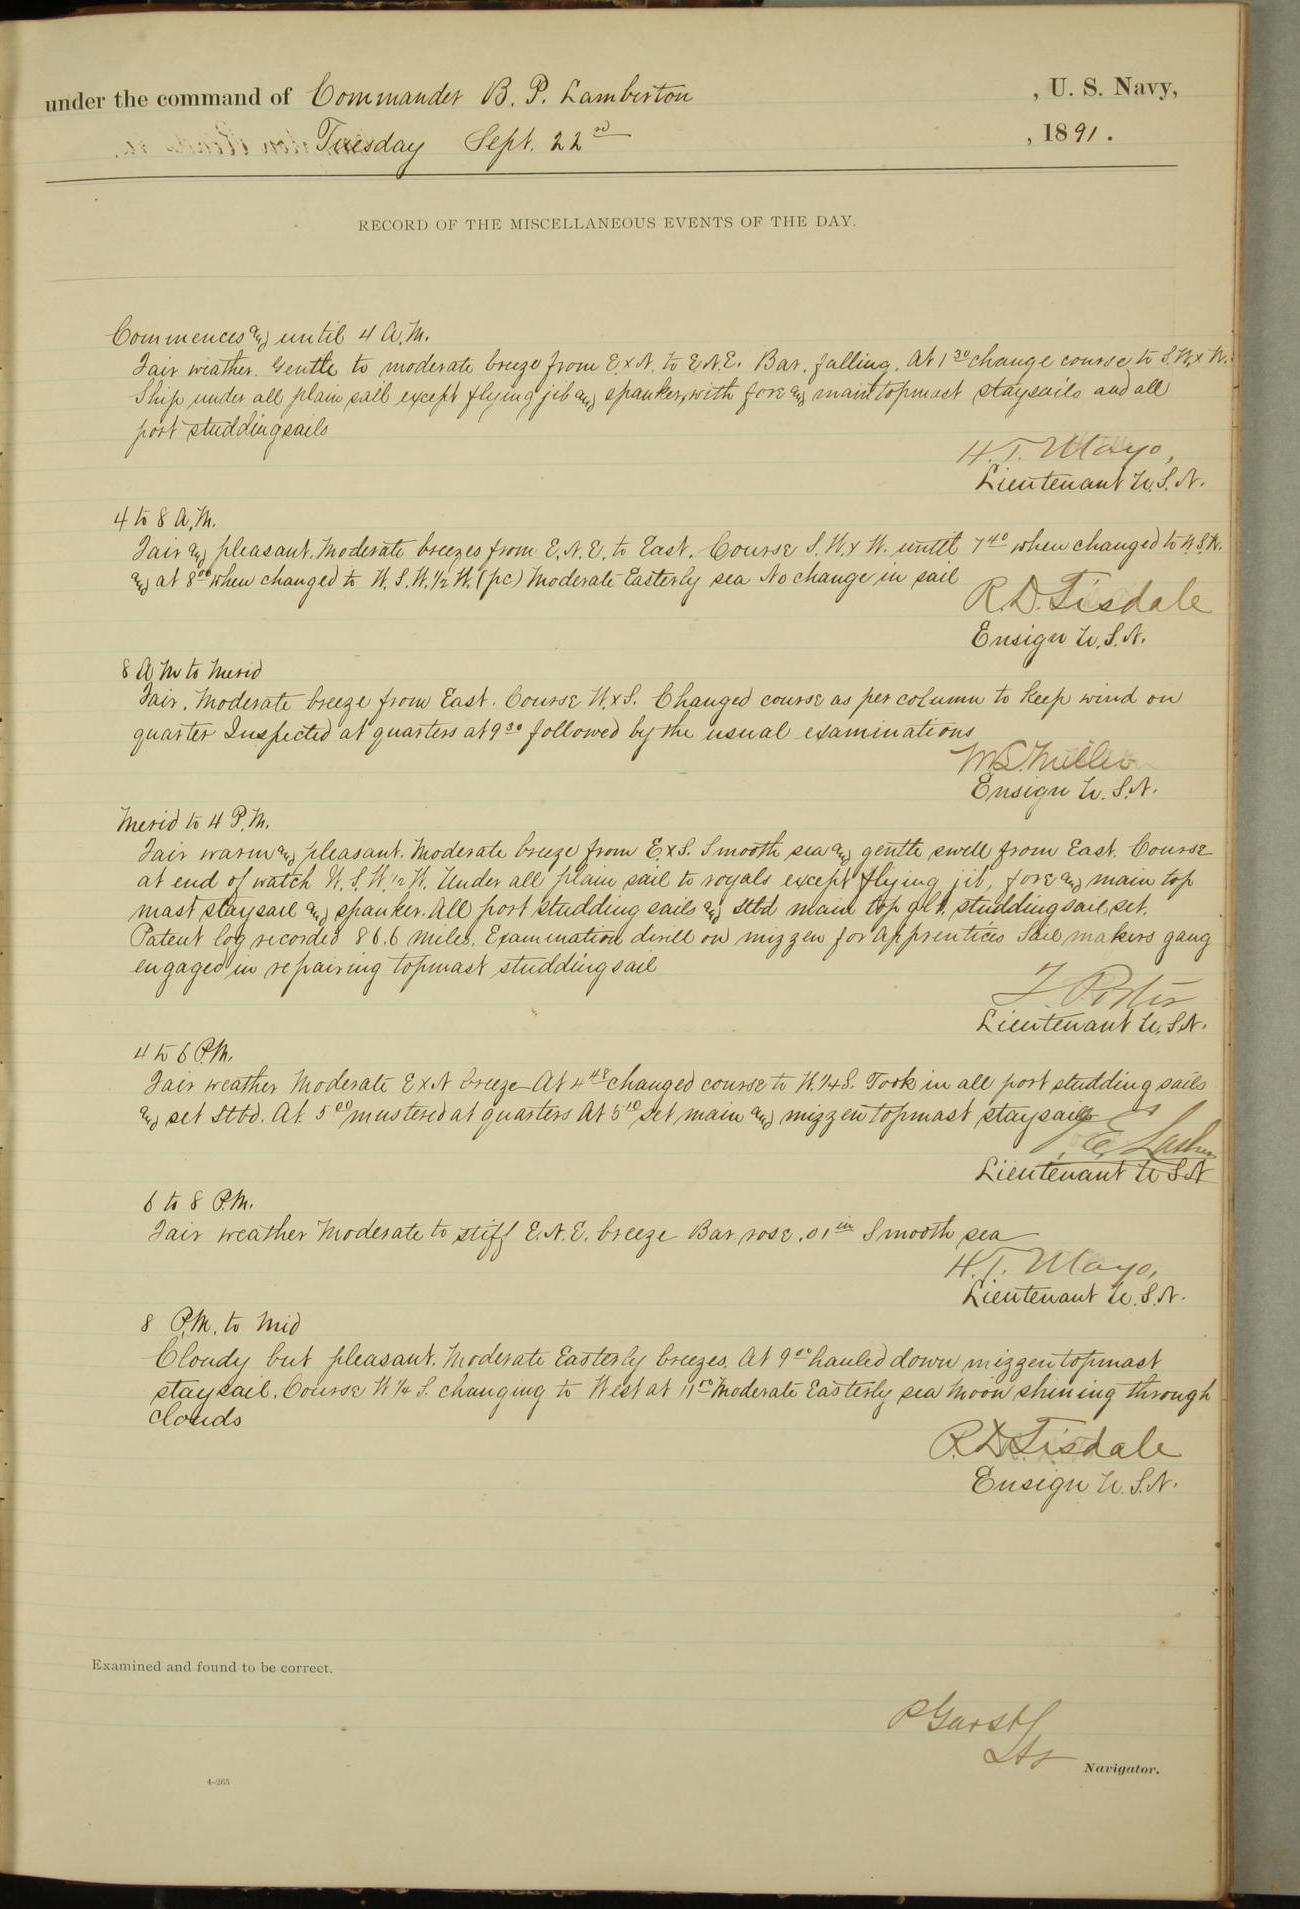 under the command of Commander B. P. Lamberton , U. S. Navy,
Tuesday Sept. 22nd , 1891.
RECORD OF THE MISCELLANEOUS EVENTS OF THE DAY.
Commences and until 4 A.M.
Fair weather. Gentle to moderate breeze from E x N. to E.N.E. Bar. falling. At 1 30 change course to S.W. x W.
Ship under all plain sail except flying jib and spanker, with fore and main topmast staysails and all
port studdingsails
H. T. Mayo,
Lieutenant U.S.N.
4 to 8 A.M.
Fair and pleasant. Moderate breezes from E.N.E. to East. Course S.W. x W. until 7 40 when changed to W.S.W.
and at 8 00 when changed to W.S.W. 1/2 W. (pc) Moderate Easterly sea No change in sail
R. D. Tisdale
Ensign U.S.N.
8 A M to Merid
Fair. Moderate breeze from East. Course W. x S. Changed course as per column to keep wind on
quarter Inspected at quarters at 9 30 followed by the usual examinations
Ensign U.S.N.
Merid to 4 P.M.
Fair warm and pleasant. Moderate breeze from E. x S. Smooth sea and gentle swell from East. Course
at end of watch W.S.W. 1/2 W. Under all plain sail to royals except flying jib, fore and main top
mast staysail and spanker. All port studding sails and Stbd main top glt. studdingsail set.
Patent log recorded 86.6 miles. Examination drill on mizzen for Apprentices Sail makers gang
engaged in repairing topmast studdingsail
Lieutenant U.S.N.
4 to 6 P.M.
Fair weather Moderate E x N breeze At 4 48 changed course to W. 1/4 S. Took in all port studding sails
and set Stbd. At 5 00 mustered at quarters At 5 10 set main and mizzen topmast staysails
Lieutenant U S N
6 to 8 P.M.
Fair weather Moderate to stiff E.N.E. breeze Bar. rose .01 in Smooth sea
H. T. Mayo,
Lieutenant U.S.N.
8 P.M. to Mid
Cloudy but pleasant. Moderate Easterly breezes. At 9 00 hauled down mizzen topmast
staysail. Course W 1/4 S. changing to West at 11 00 Moderate Easterly sea Moon shining through
clouds
R. D. Tisdale
Ensign U.S.N.
Examined and found to be correct.
Navigator.
4-265